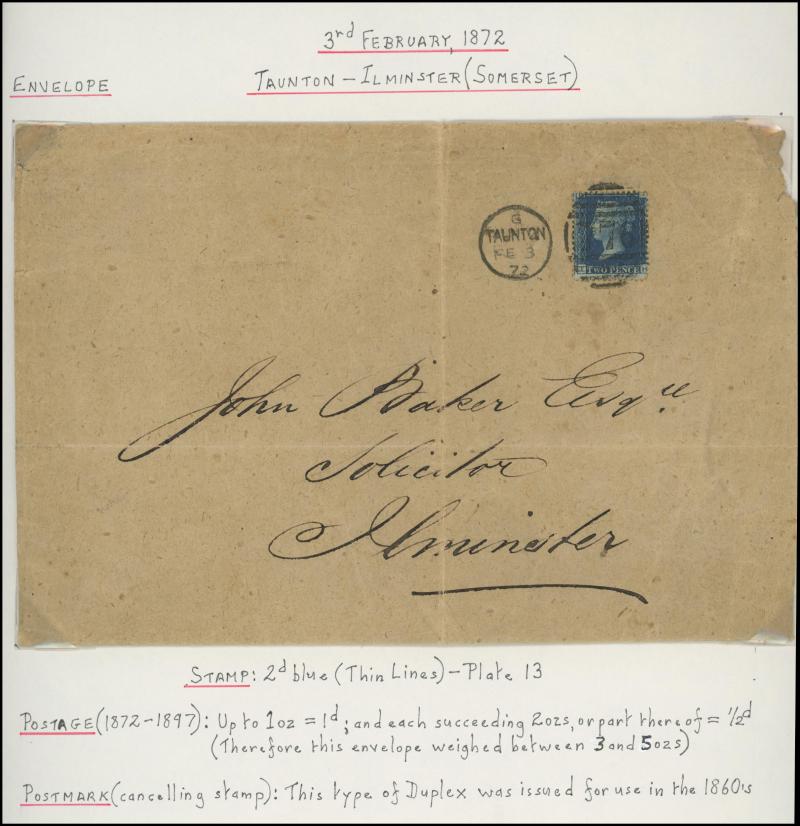 3rd FEBRUARY, 1872
ENVELOPE
TAUNTON – ILMINSTER (SOMERSET)
G
TAUNTON
FE 3
72
TWO PENCE
John Baker Esqre
Solicitor
Ilminster
STAMP: 2d blue (Thin Lines) – Plate 13
POSTAGE (1872–1897): Up to 1oz = 1d; and each succeeding 2ozs, or part thereof = ½d
(Therefore this envelope weighed between 3 and 5ozs)
POSTMARK (cancelling stamp): This type of Duplex was issued for use in the 1860's